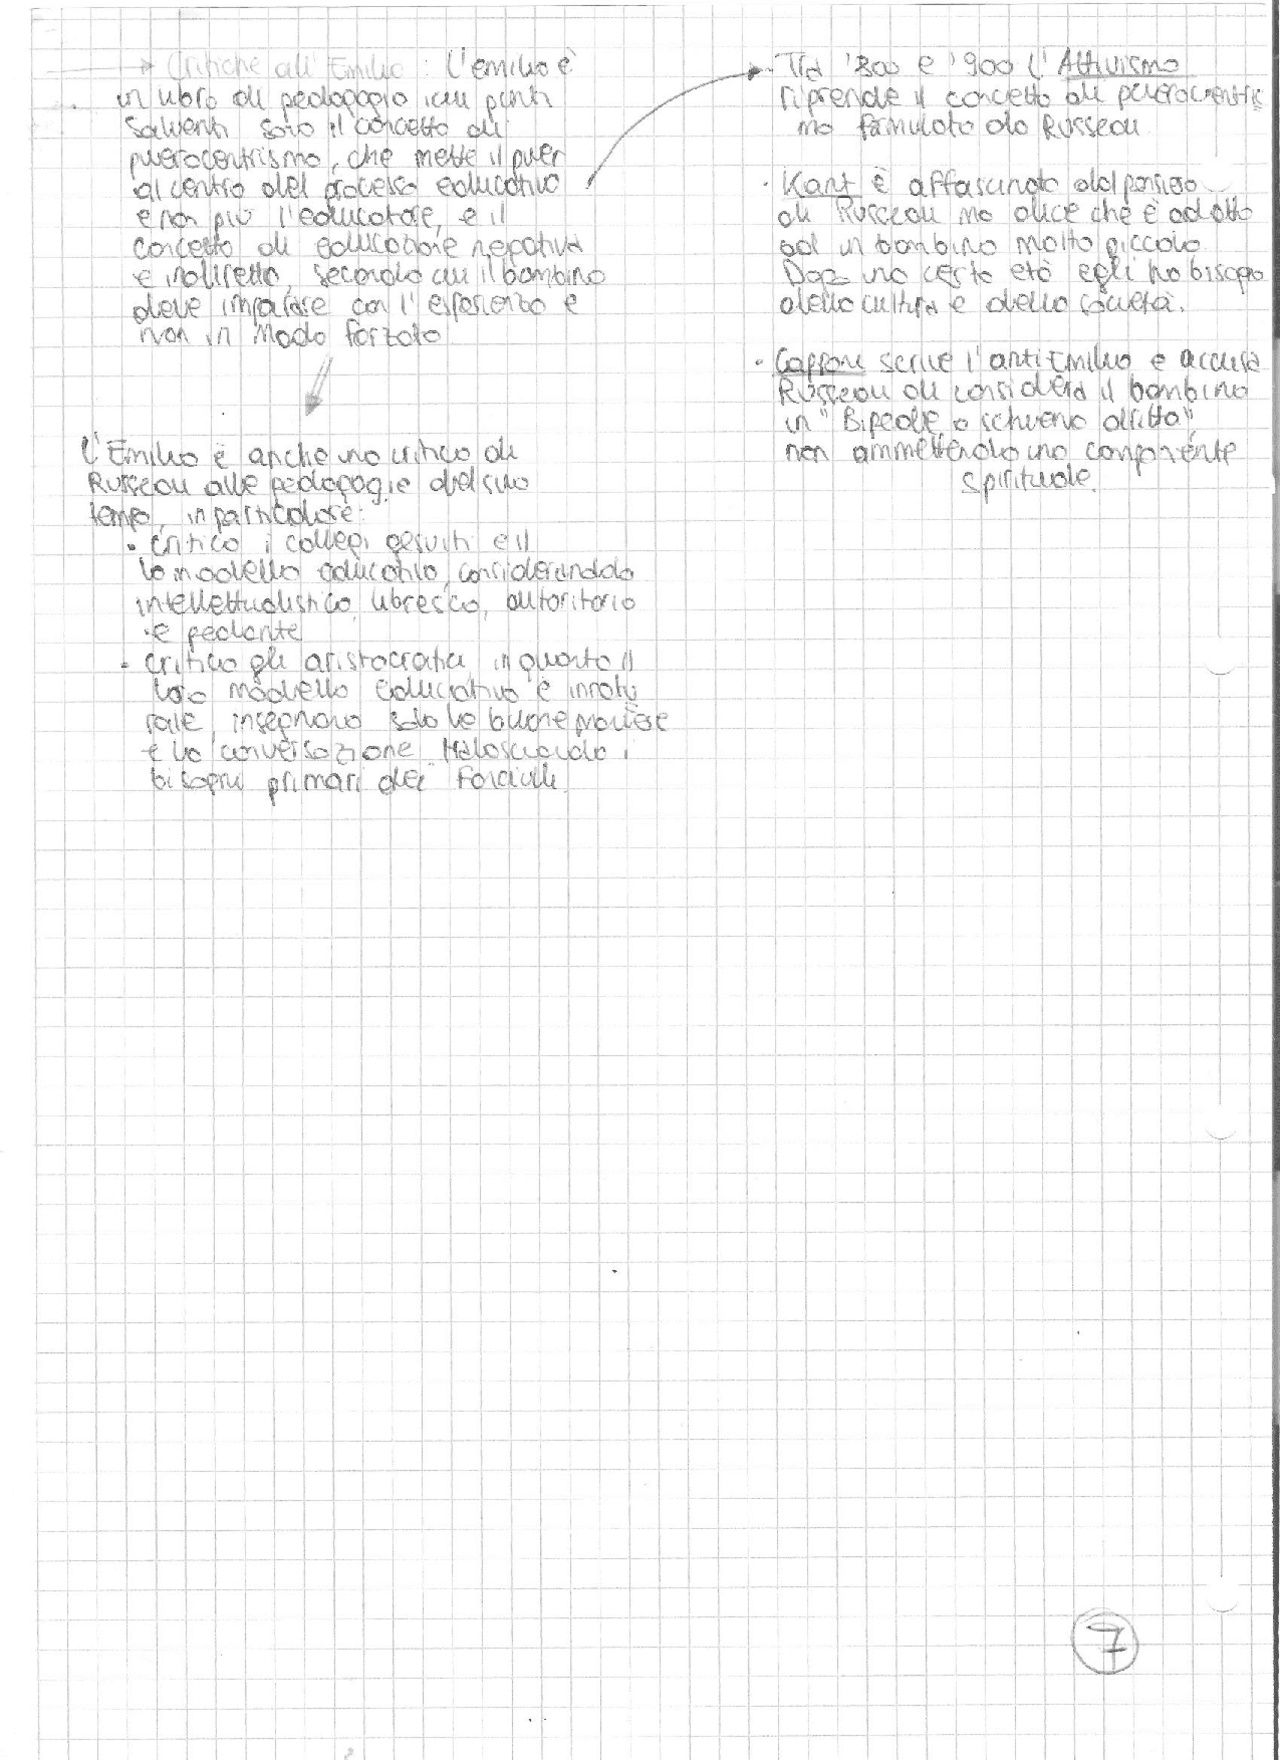 → Critiche all'Emilio: L'emilio è
un libro di pedagogia i cui punti
salienti sono il concetto di
puerocentrismo, che mette il puer
al centro del processo educativo
e non più l'educatore, e il
concetto di educazione negativa
e indiretta, secondo cui il bambino
deve imparare con l'esperienza e
non in modo forzato
L'Emilio è anche una critica di
Russeau alle pedagogie del suo
tempo, in particolare:
• critica i collegi gesuiti e il
lo modello educativo, considerandolo
intellettualistico, libresco, autoritario
e pedante
• critica gli aristocratici in quanto il
loro modello educativo è innatu
rale, insegnano solo le buone maniere
e la conversazione tralasciando i
bisogni primari dei fanciulli.
- Tra '800 e '900 l'Attivismo
riprende il concetto di puerocentris
mo formulato da Russeau
• Kant è affascinato dal pensiero
di Russeau ma dice che è adatto
ad un bambino molto piccolo.
Dopo una certa età egli ha bisogno
della cultura e della società.
• Capponi scrive l'anti Emilio e accusa
Russeau di considera il bambino
un "Bipede a schiena dritta",
non ammettendo una componente
spirituale.
7